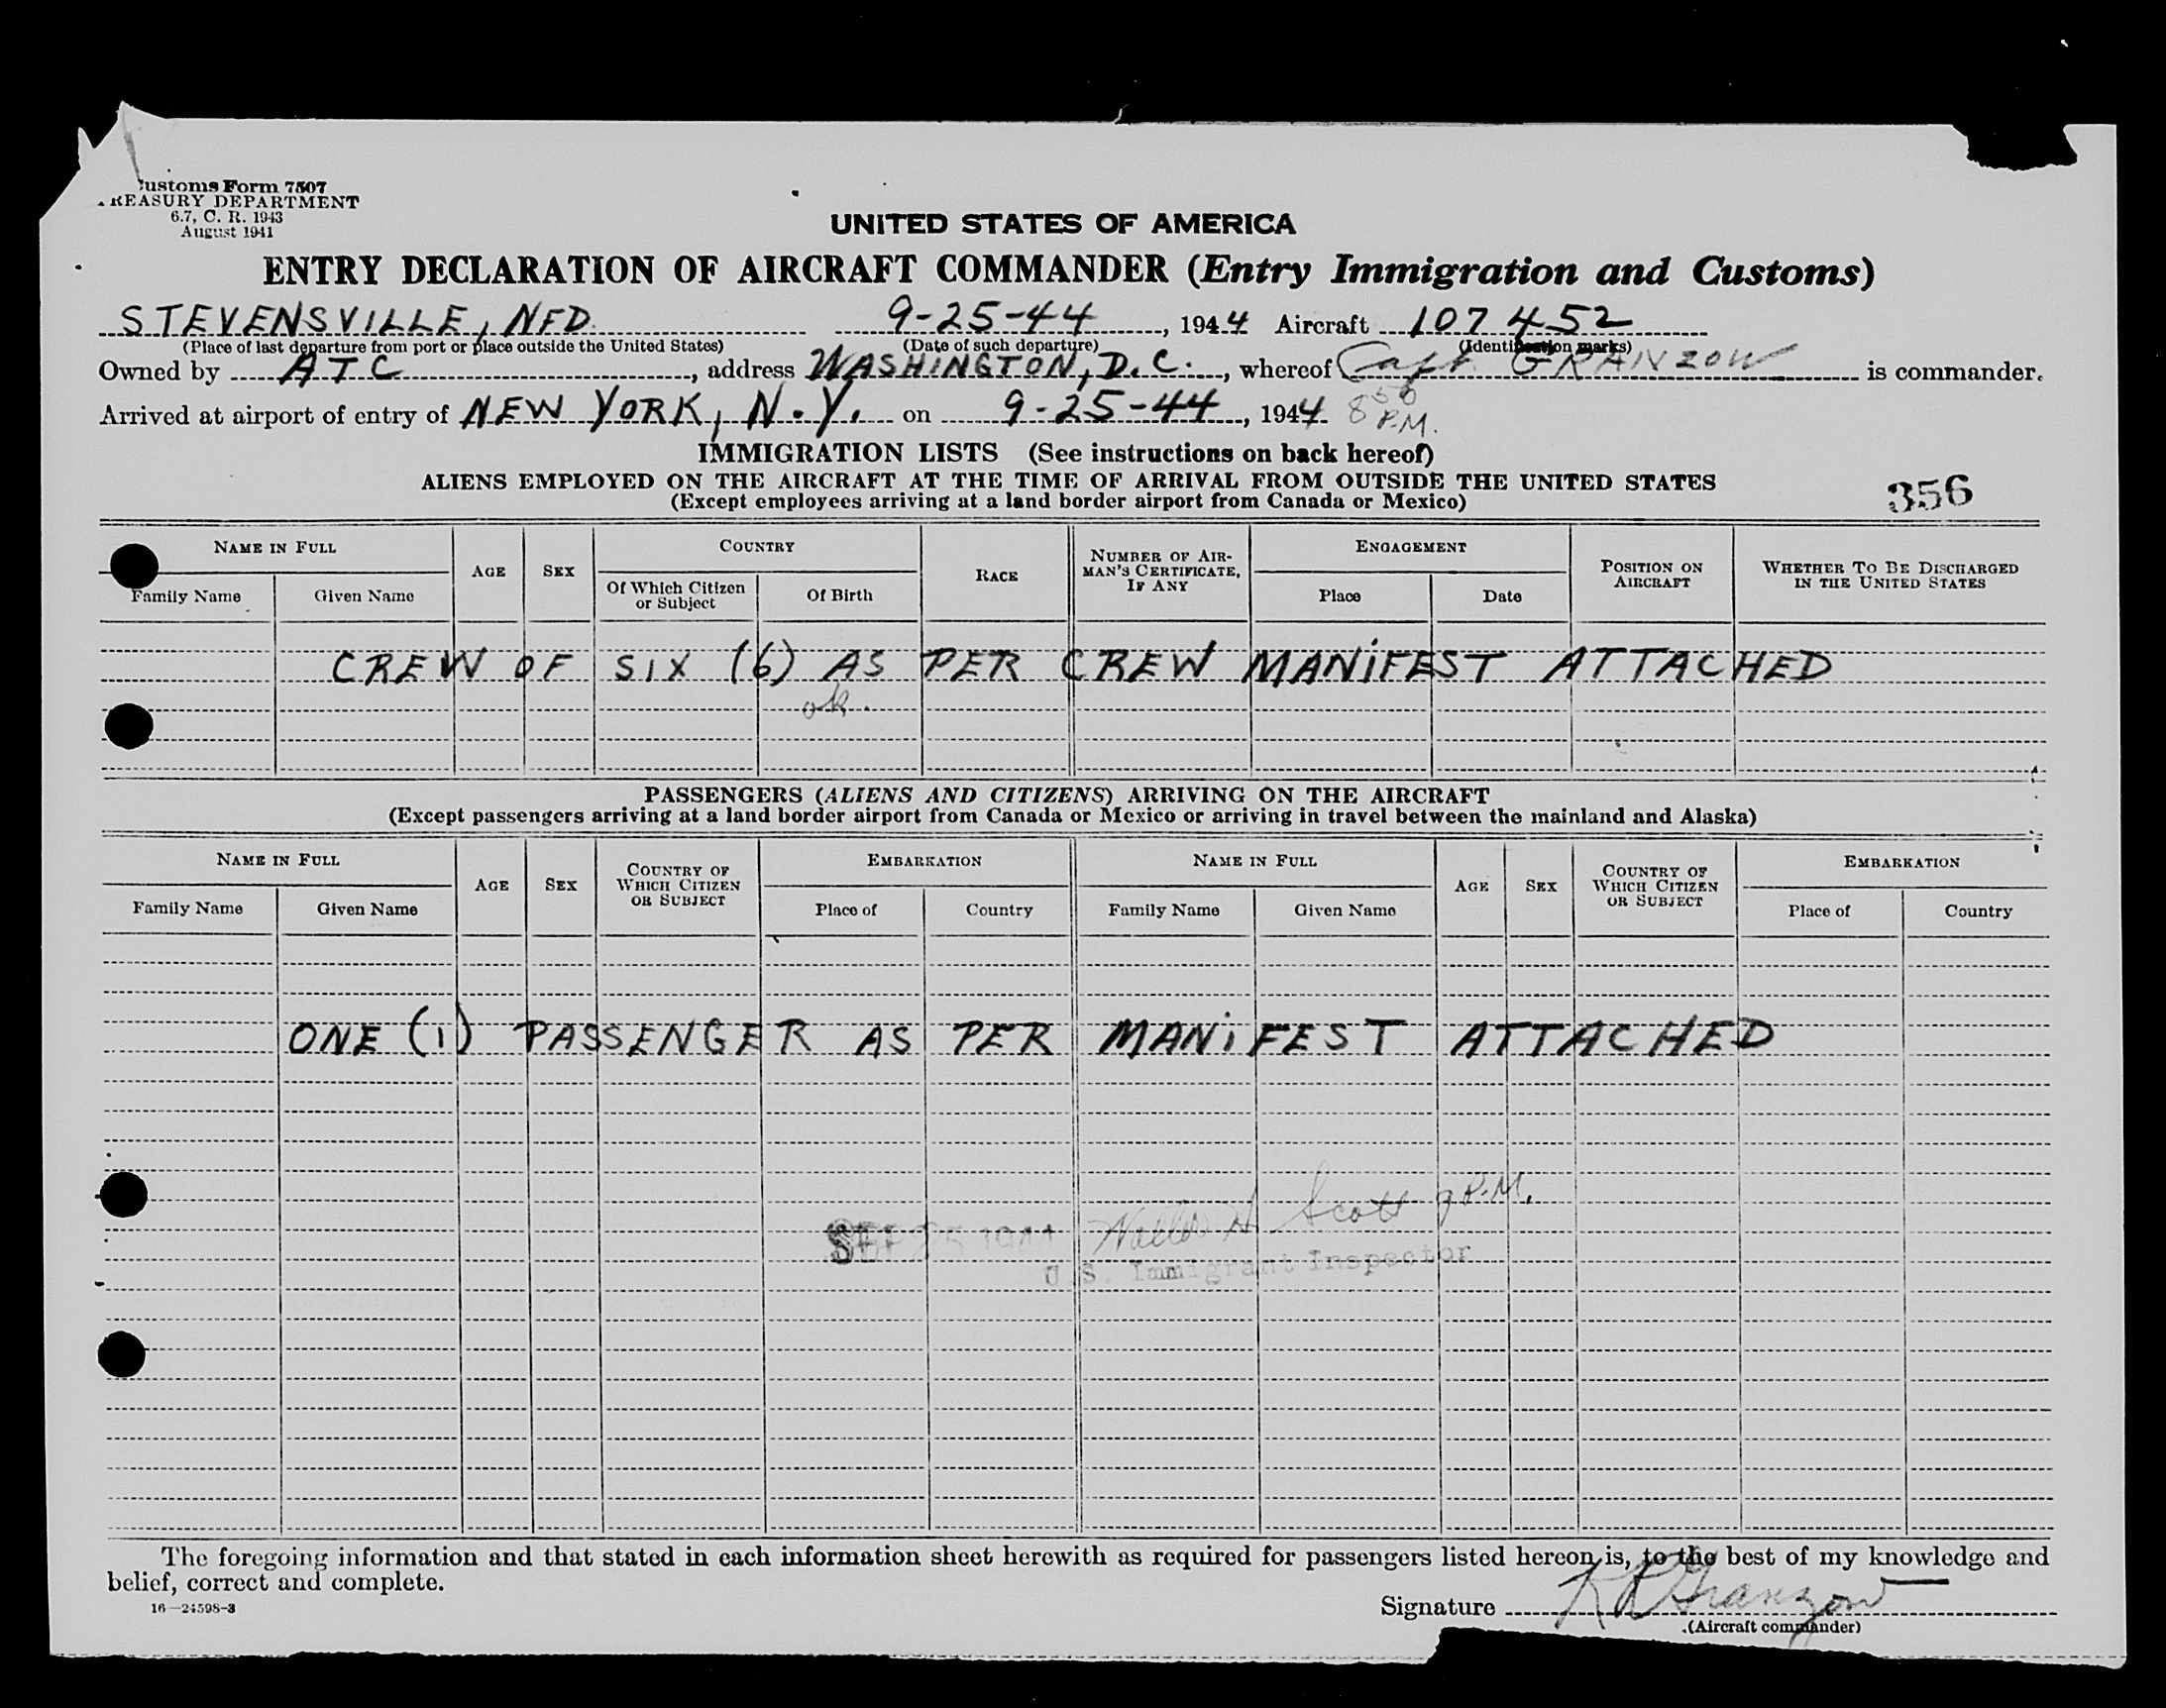 Customs Form 7507
TREASURY DEPARTMENT
6.7, C. R. 1943
August 1941
UNITED STATES OF AMERICA
ENTRY DECLARATION OF AIRCRAFT COMMANDER (Entry Immigration and Customs)
STEVENSVILLE, NFD 9-25-44, 1944 Aircraft 107452
(Place of last departure from port or place outside the United States) (Date of such departure) (Identification marks)
Owned by ATC, address WASHINGTON, D.C., whereof Capt GRANZOW is commander.
Arrived at airport of entry of NEW YORK, N.Y. on 9-25-44, 1944 8 50 P.M.
IMMIGRATION LISTS (See instructions on back hereof)
ALIENS EMPLOYED ON THE AIRCRAFT AT THE TIME OF ARRIVAL FROM OUTSIDE THE UNITED STATES
(Except employees arriving at a land border airport from Canada or Mexico)
356
NAME IN FULL
Family Name Given Name
AGE
SEX
COUNTRY
Of Which Citizen or Subject
Of Birth
RACE
NUMBER OF AIRMAN'S CERTIFICATE, IF ANY
ENGAGEMENT
Place Date
POSITION ON AIRCRAFT
WHETHER TO BE DISCHARGED IN THE UNITED STATES
CREW OF SIX (6) AS PER CREW MANIFEST ATTACHED
ok.
PASSENGERS (ALIENS AND CITIZENS) ARRIVING ON THE AIRCRAFT
(Except passengers arriving at a land border airport from Canada or Mexico or arriving in travel between the mainland and Alaska)
NAME IN FULL
Family Name Given Name
AGE
SEX
COUNTRY OF WHICH CITIZEN OR SUBJECT
EMBARKATION
Place of Country
NAME IN FULL
Family Name Given Name
AGE
SEX
COUNTRY OF WHICH CITIZEN OR SUBJECT
EMBARKATION
Place of Country
ONE (1) PASSENGER AS PER MANIFEST ATTACHED
SEP 25 1944 Scott 9 P.M.
U.S. Immigrant Inspector
The foregoing information and that stated in each information sheet herewith as required for passengers listed hereon is, to the best of my knowledge and
belief, correct and complete.
16—24598-3
Signature K R Granzow
(Aircraft commander)